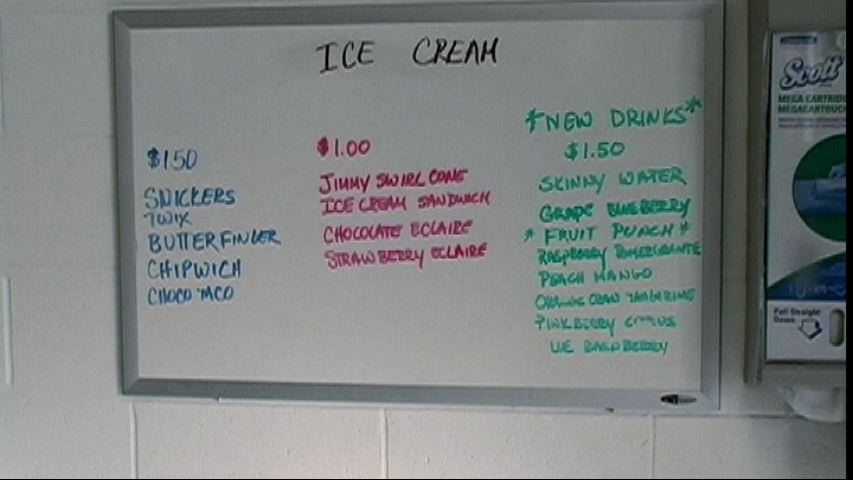 ICE CREAM
$150
SNICKERS
TWIX
BUTTERFINGER
CHIPWICH
CHOCO TACO
$1.00
JIMMY SWIRL CONE
ICE CREAM SANDWICH
CHOCOLATE ECLAIRE
STRAWBERRY ECLAIRE
*NEW DRINKS*
$1.50
SKINNY WATER
GRAPE BLUEBERRY
* FRUIT PUNCH *
RASPBERRY POMEGRANTE
PEACH MANGO
ORANGE CRAN TANGERINE
PINKBERRY CITRUS
RASPBERRY
Scott
MEGA CARTRIDGE
MEGACARTOUCHE
Pull Straight
Down